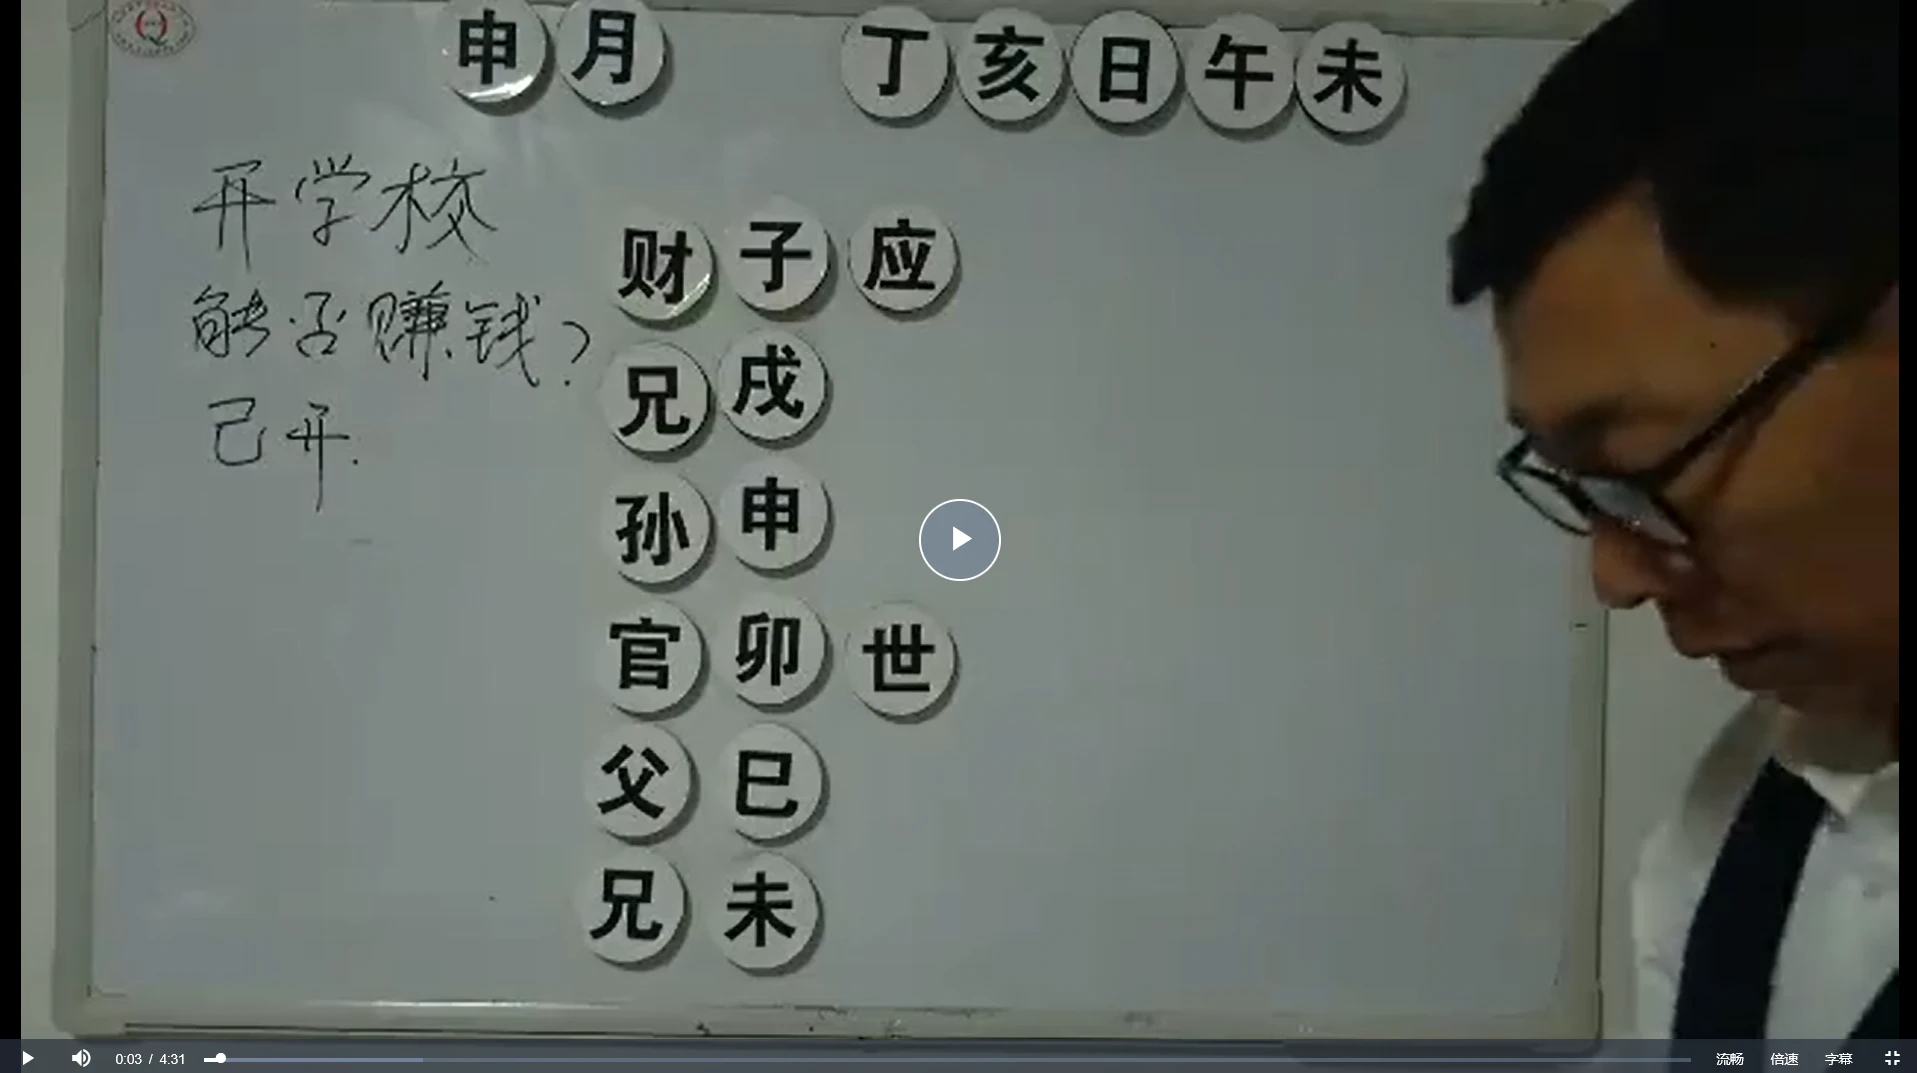 申月 丁亥日午未
开学校
能否赚钱？
己开.
财子应
兄戌
孙申
官卯世
父巳
兄未
0:03 / 4:31
流畅 倍速 字幕